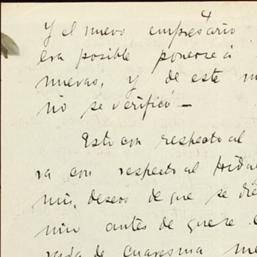 y el nuevo empresario
era posible ponerse á
nuevas, y de este m
no se verificó —
Esto con respecto al
ra con respecto al
mis deseos de que se die
antes de que se
de cuaresma me